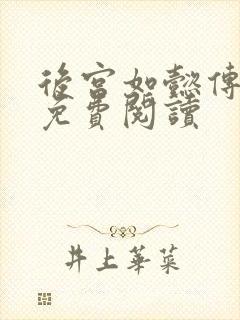 後宮如懿傳
免費閱讀
井上華菜